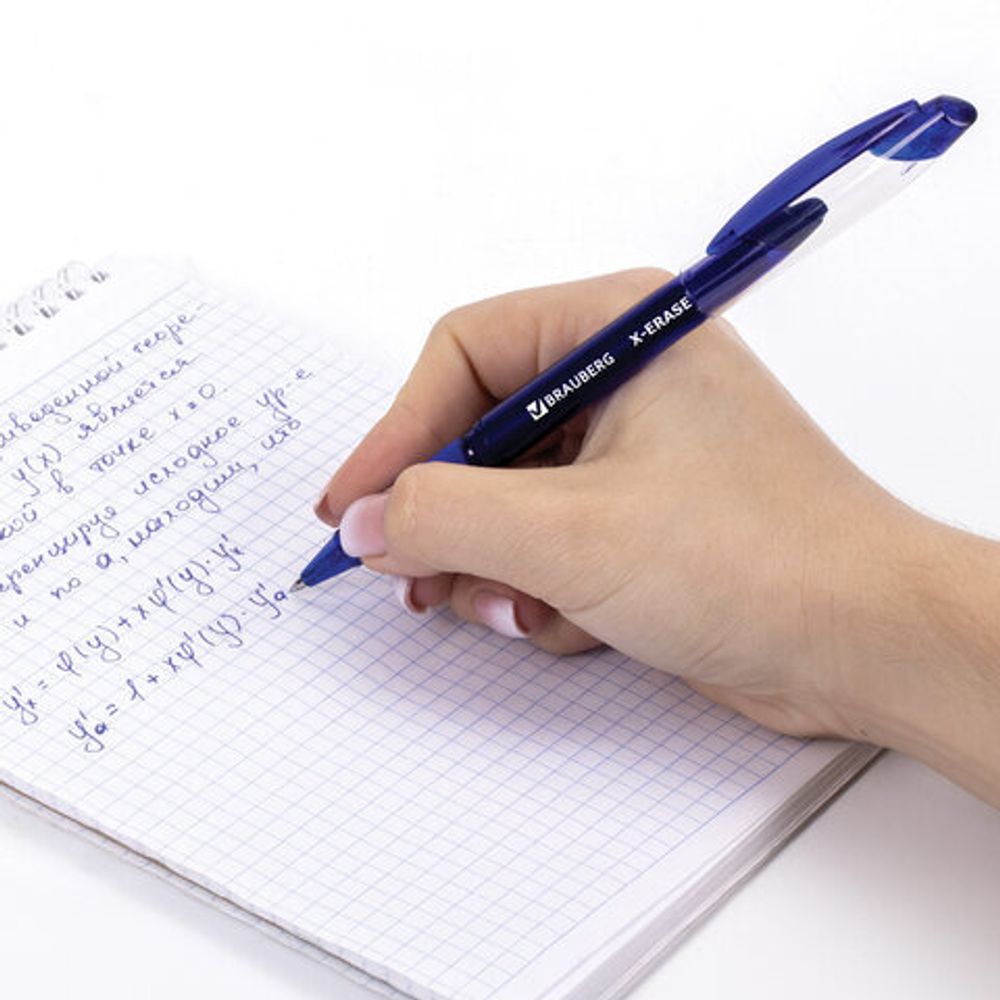 иведенной теоре-
y(x) является
кой в точке x=0.
еренцируя исходное ур-е
и по a, находим, что
y'ₓ = φ(y) + xφ'(y)·y'ₓ
y'ₐ = 1 + xφ'(y)·y'ₐ
BRAUBERG X-ERASE